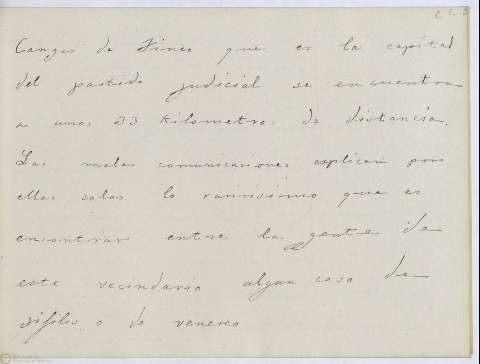 223
Cangas de Tineo que es la capital
del partido judicial se encuentra
a unos 33 kilometros de distancia.
Las malas comunicaciones explican por
ellas solas lo rarisisimo que es
encontrar entre la gente de
este vecindario algun caso de
sifiles, o de venereo